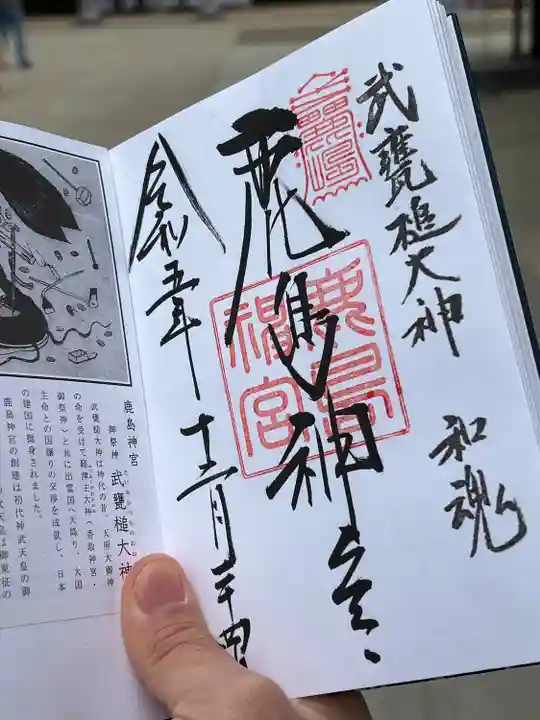 武甕槌大神 和魂
鹿島神宮
令和五年 十二月 二十四
鹿島神宮
鹿島神宮
御祭神 武甕槌大神
武甕槌大神は神代の昔、天照大御神
の命を受けて経津主大神(香取神宮・
御祭神)と共に出雲国へ天降り、大国
主命との国譲りの交渉を成就し、日本
の建国に挺身されました。
鹿島神宮の創建は初代神武天皇の御